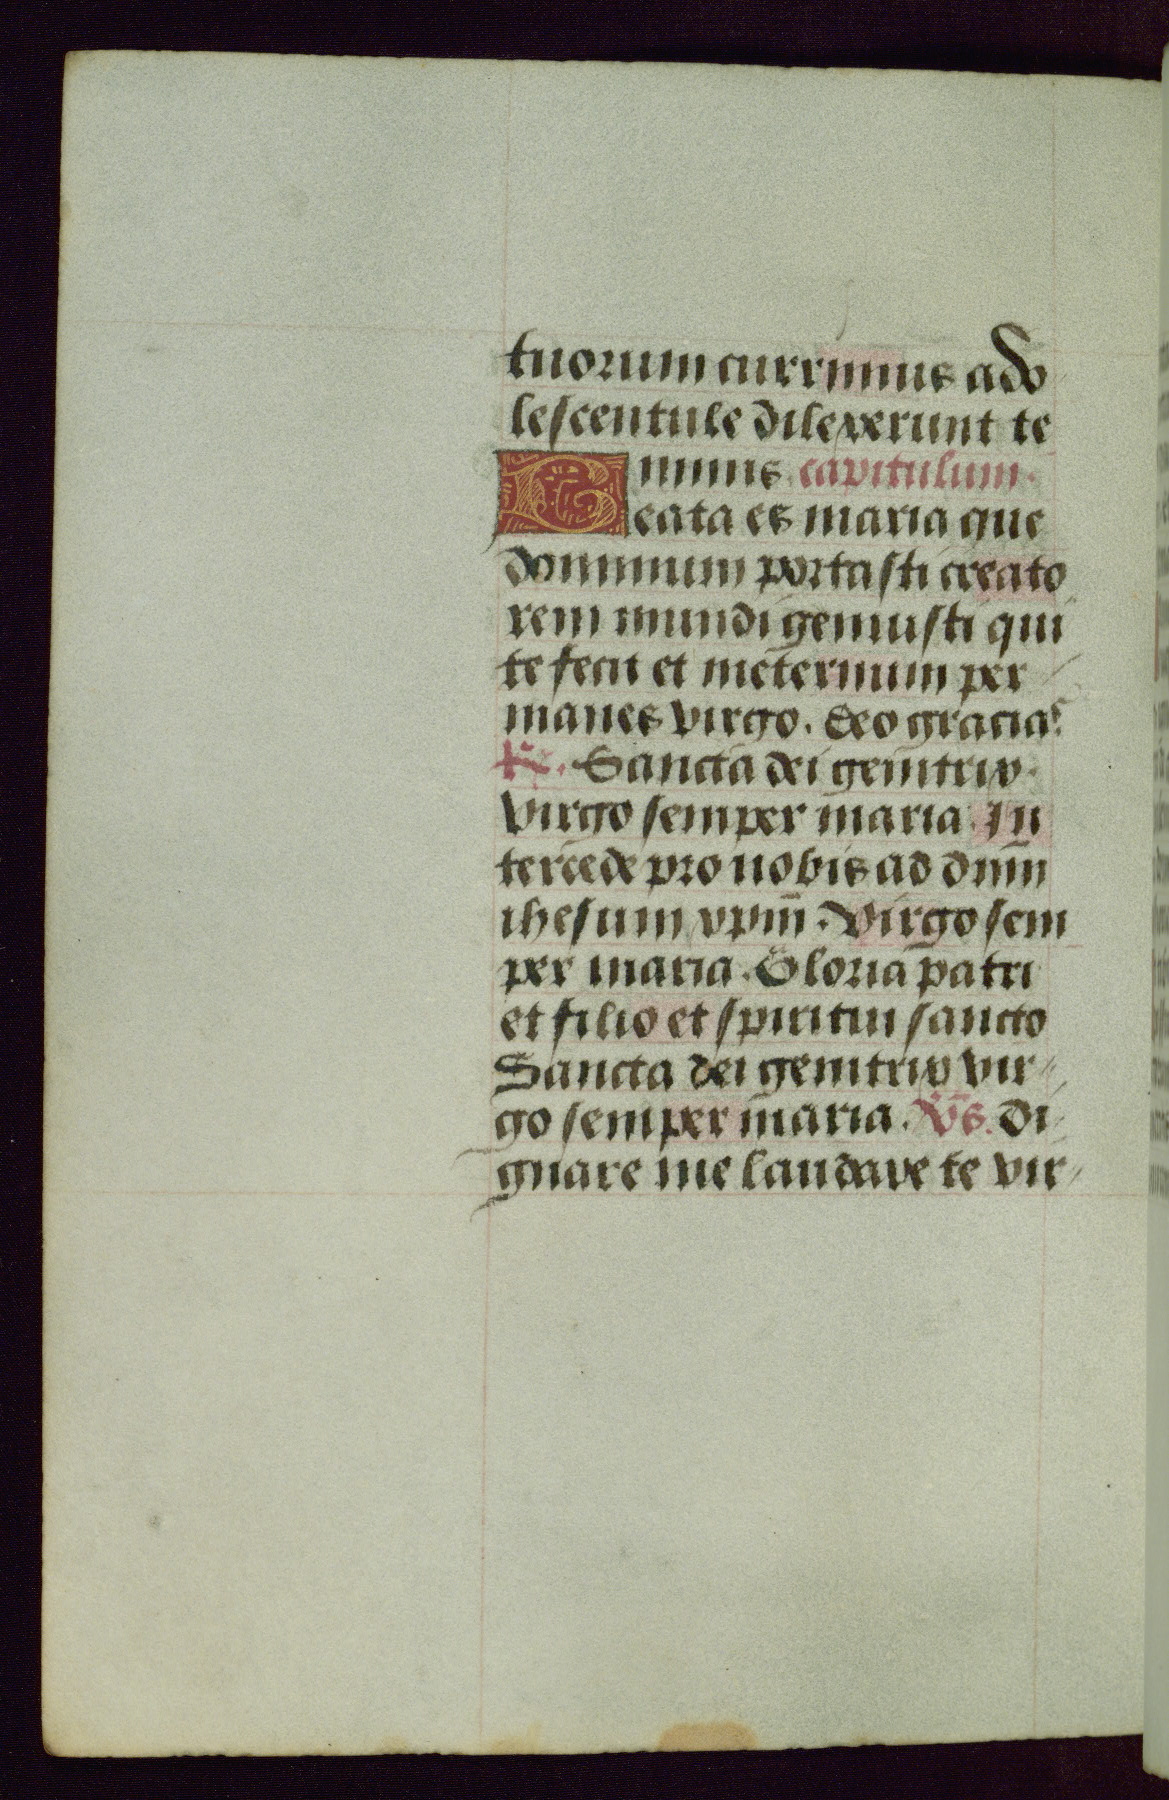 tuorum currimus ado
lescentule dilexerunt te
nimis capitulum
Beata es maria que
dominum portasti creato
rem mundi genuisti qui
te fecit et ineternum per
manes virgo. Deo gracias
R. Sancta dei genitrix
virgo semper maria. In
tercede pro nobis ad dnm̄
ihesum xpm̄. Virgo sem
per maria. Gloria patri
et filio et spiritui sancto
Sancta dei genitrix vir
go semper maria. Vs. Di
gnare me laudare te vir